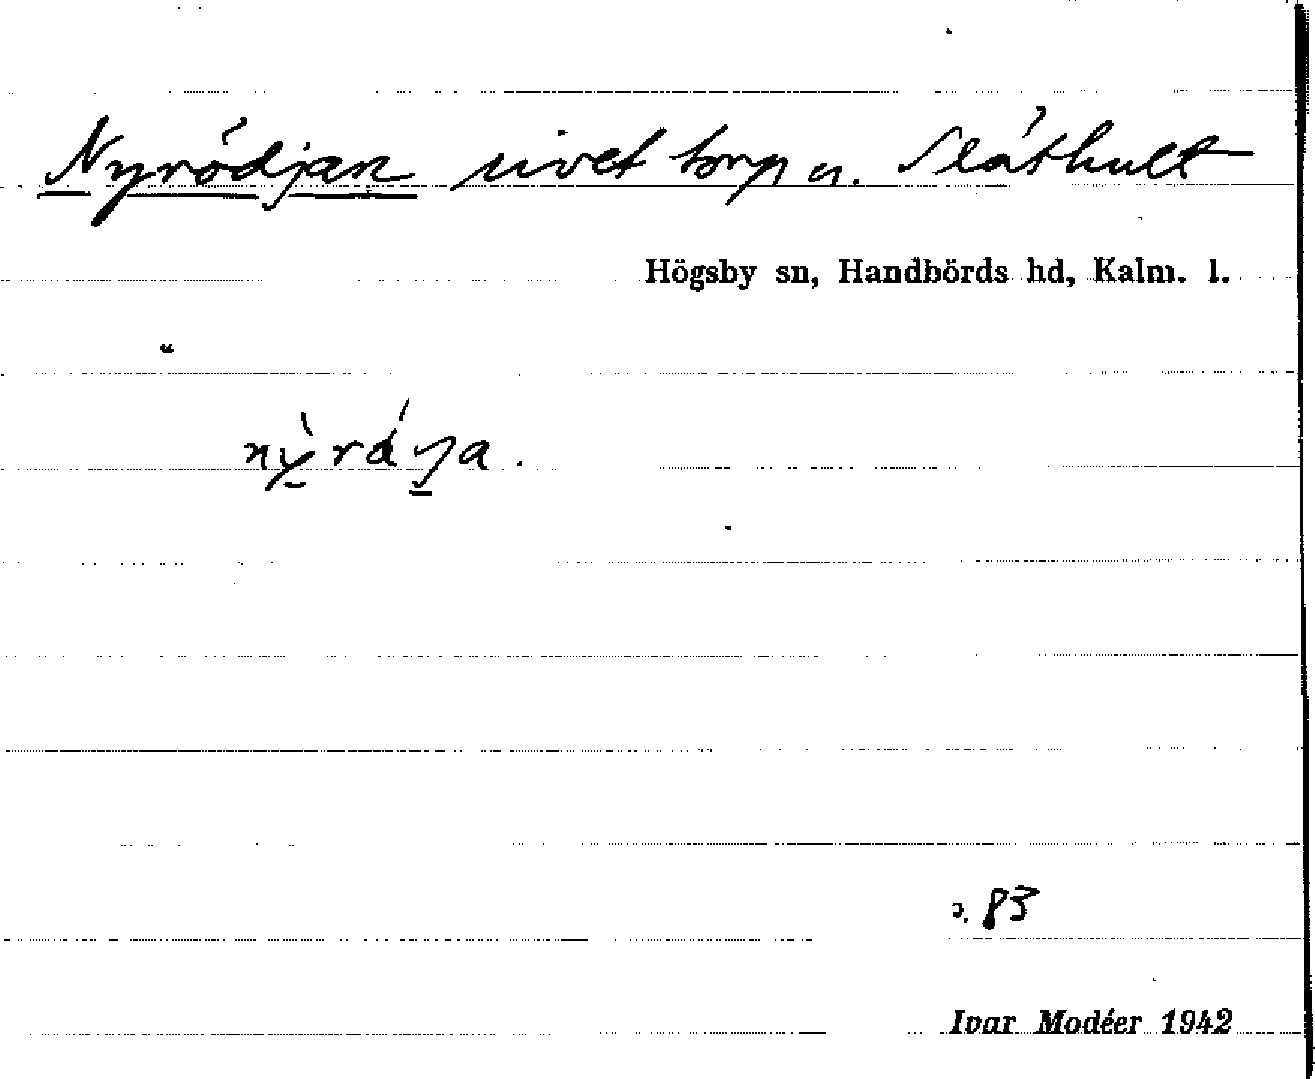 Nyrödjan rivet torp u. Slåthult
Högsby sn, Handbörds hd, Kalm. l.
s. 83
Ivar Modéer 1942